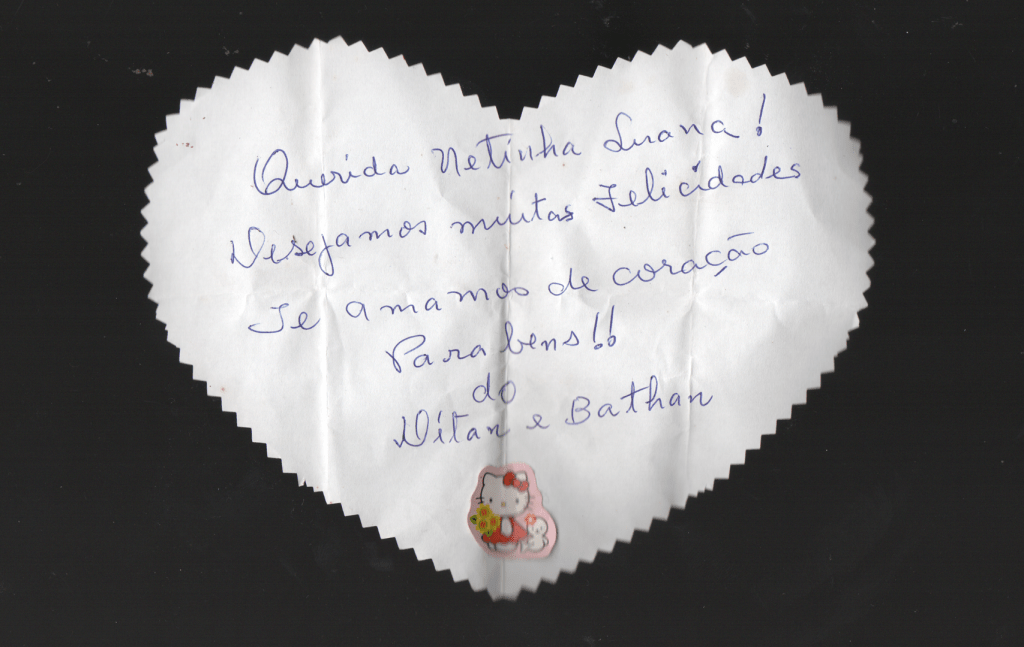 Querida Netinha Luana!
Desejamos muitas Felicidades
Te amamos de coração
Parabens!!
do
Ditan e Bathan